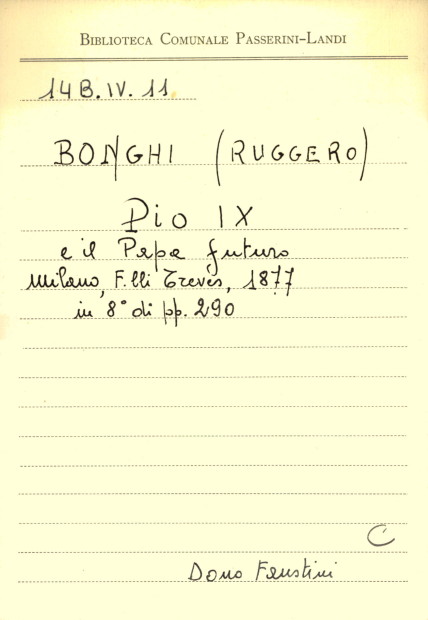 BIBLIOTECA COMUNALE PASSERINI-LANDI
14 B. IV. 11
BONGHI (RUGGERO)
Pio IX
e il Papa futuro
Milano, F.lli Treves, 1877
in 8° di pp. 290
C
Dono Faustini